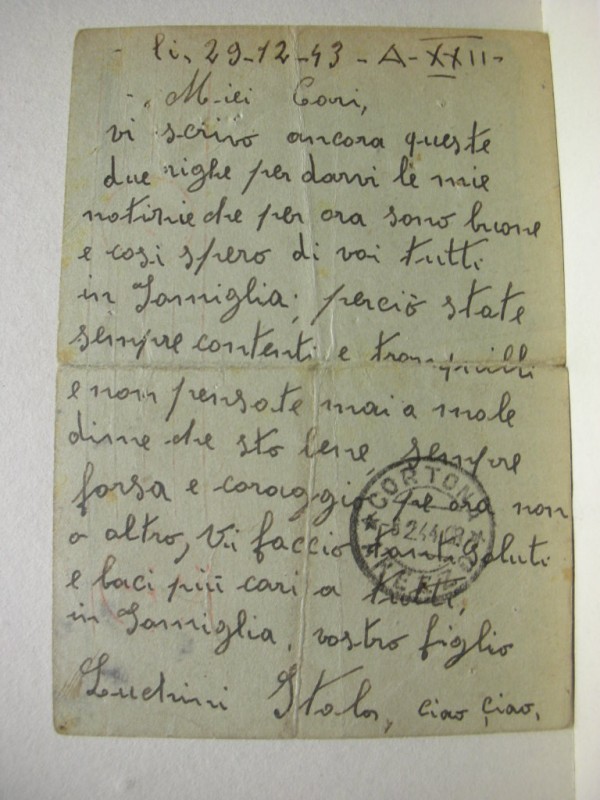 - li, 29-12-43 - A-XXII-
-, Miei Cari,
vi scrivo ancora queste
due righe per darvi le mie
notizie che per ora sono buone
e cosi spero di voi tutti
in Famiglia; perciò state
sempre contenti e tranquilli
e non pensate mai a male
dime che sto bene, sempre
forsa e coraggio pe ora non
o altro, Vi faccio tanti Saluti
e baci più cari a tutti,
in Famiglia, vostro figlio
Luchini Italo, ciao ciao,
CORTONA
AREZZO